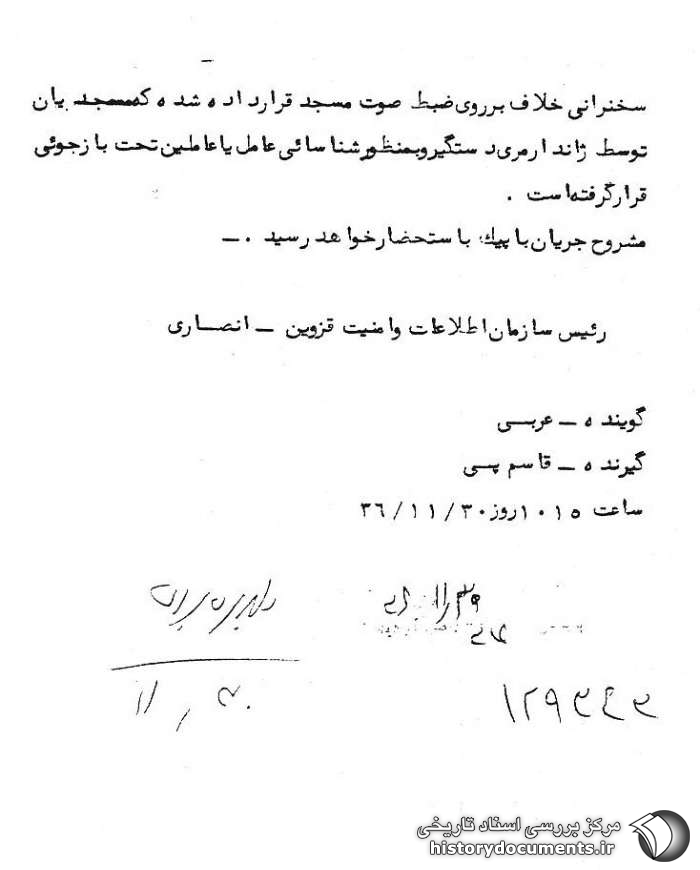 سخنرانی خلاف بر روی ضبط صوت مسجد قرار داده شده که مسجد یان
توسط ژاندارمری دستگیر و بمنظور شناسائی عامل یا عاملین تحت بازجوئی
قرار گرفته است .
مشروح جریان با پیک باستحضار خواهد رسید . ـ
رئیس سازمان اطلاعات و امنیت قزوین ــ انصاری
گوینده ــ عربی
گیرنده ــ قاسم پسی
ساعت ۱۰۱۵ روز ۳۶/۱۱/۳۰
۳۰/۱۱
مرکز بررسی اسناد تاریخی
historydocuments.ir